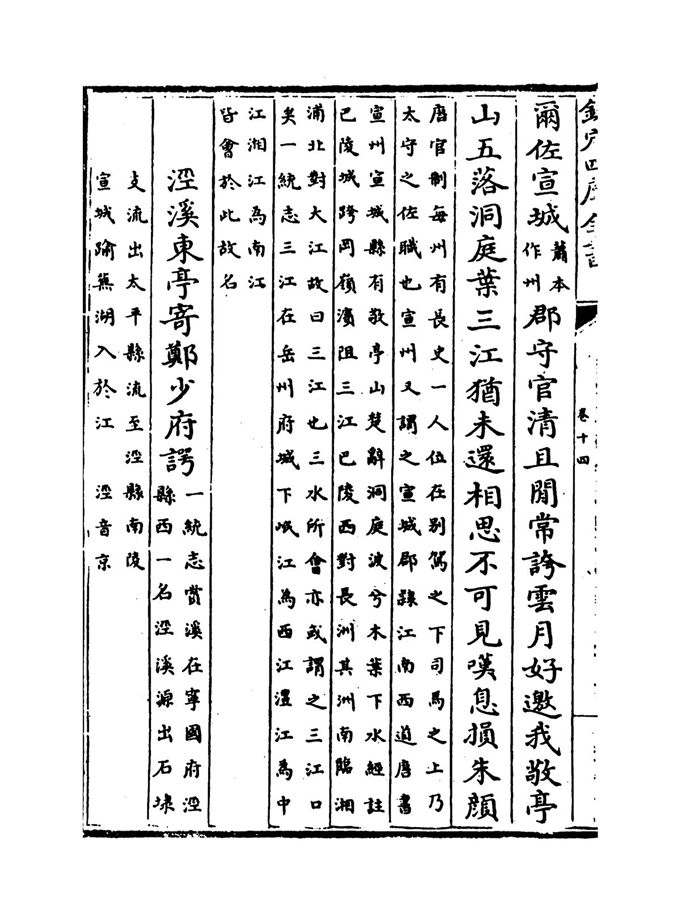 欽定四庫全書
卷十四
爾佐宣城蕭本作州郡守官清且閒常誇雲月好邀我敬亭
山五落洞庭葉三江猶未還相思不可見嘆息損朱顔
唐官制每州有長史一人位在别駕之下司馬之上乃
太守之佐職也宣州又謂之宣城郡隸江南西道唐書
宣州宣城縣有敬亭山楚辭洞庭波兮木葉下水經註
巴陵城跨岡嶺濱阻三江巴陵西對長洲其洲南臨湘
浦北對大江故曰三江也三水所會亦或謂之三江口
矣一統志三江在岳州府城下岷江為西江澧江為中
江湘江為南江
皆會於此故名
涇溪東亭寄鄭少府諤一統志賞溪在寧國府涇
縣西一名涇溪源出石埭
支流出太平縣流至涇縣南陵
宣城踰蕪湖入於江 涇音京